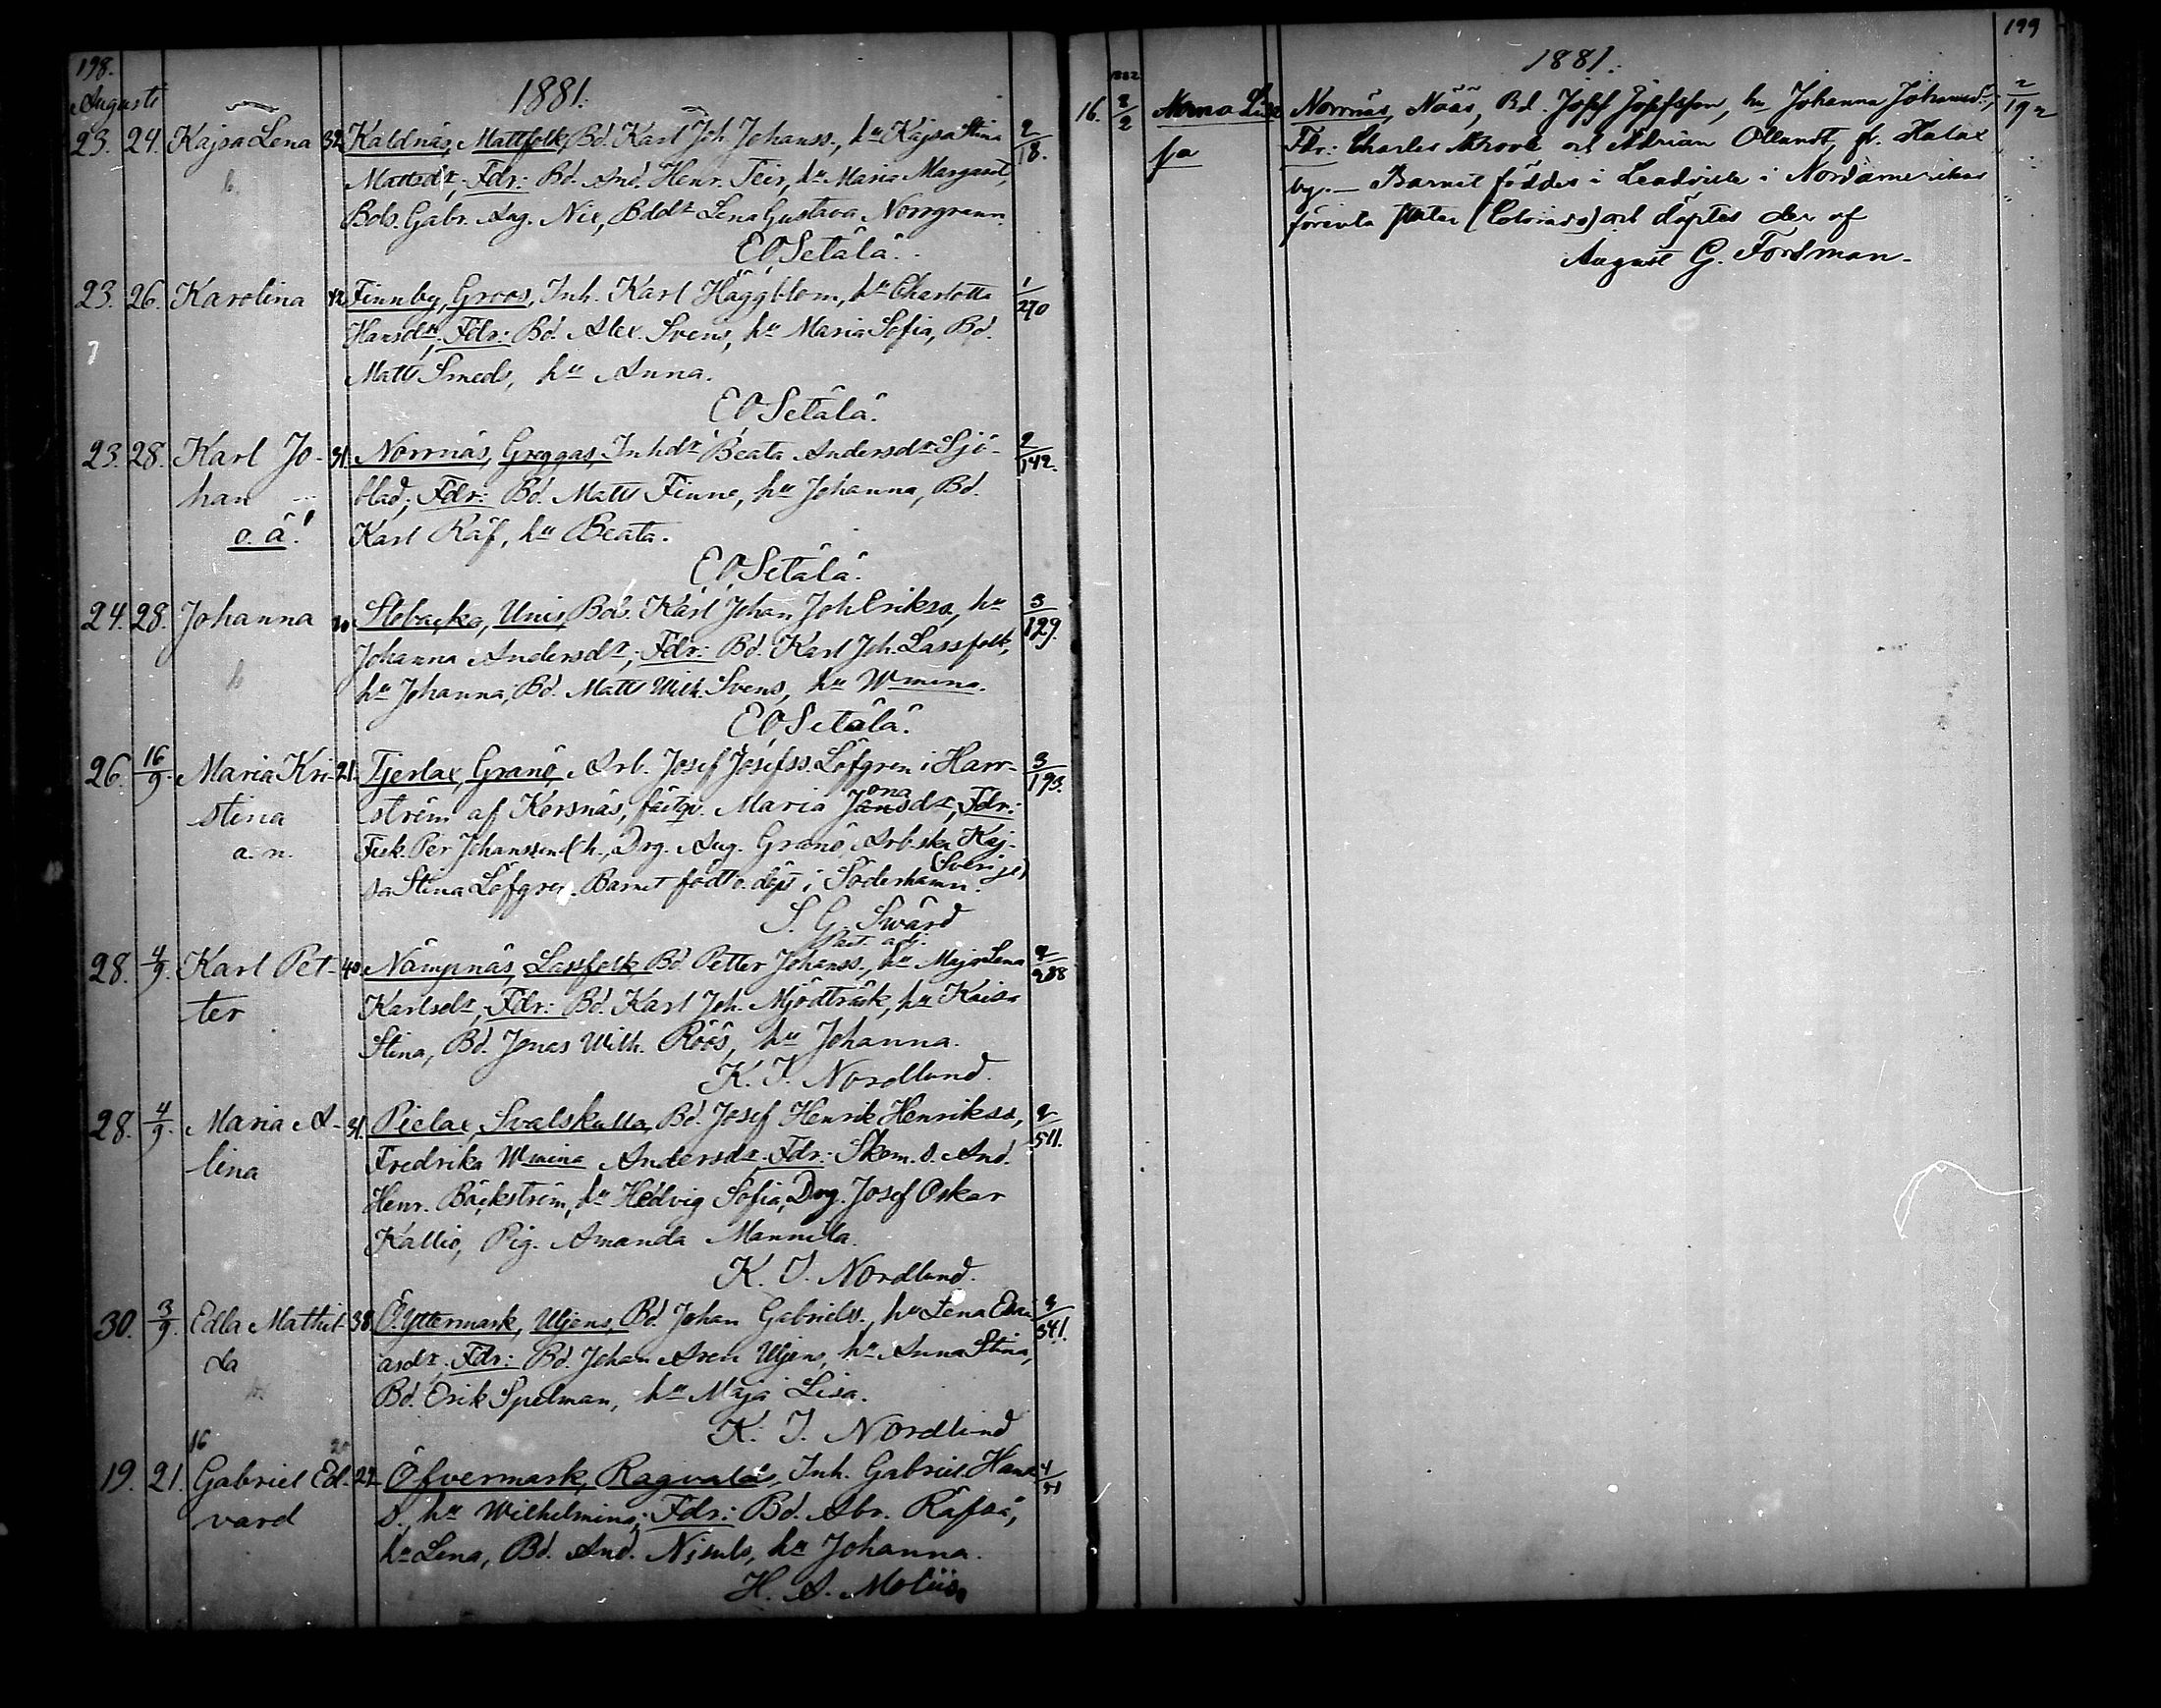 198.
Augusti
1881.
23. 24. Kajsa Lena 32 Kaldnäs, Mattfolk, Bd. Karl Joh. Johanss., hu Kajsa Stina 2/18.
Mattsdr; Fdr: Bd. And. Henr. Teir, hu Maria Margaret,
Bds. Gabr. Aug. Nix, Bddr Lena Gustava Norrgrann.
E O Setälä.
23. 26. Karolina 42 Finnby, Groos, Inh. Karl Häggblom, hu Charlotta 1/270
Hansdr; Fdr: Bd. Alex. Svens, hu Maria Sofia, Bd.
Matts Smeds, hu Anna.
E O Setälä.
23. 28. Karl Jo- 31. Norrnäs, Greggas, Inhdr Beata Andersdr Sjö- 2/142.
han blad; Fdr: Bd. Matts Finne, hu Johanna, Bd.
o. ä! Karl Räf, hu Beata.
E O Setälä.
24. 28. Johanna Slobacka, Unis, Bds. Karl Johan Joh. Erikss, hu 3/129.
Johanna Andersdr; Fdr: Bd. Karl Joh. Lassfolk,
hu Johanna, Bd. Matts Wilh. Svens, hu Wmina.
E O Setälä.
26. 16/9. Maria Kri- 21. Tjerlax, Granö, Arb. Josef Josefss. Löfgren i Harr- 3/193.
stina ström af Korsnäs, fästqv. Maria Jansdr, Fdr:
ona
a. n. Per Johansson Drg. Aug. Granö, Kaj-
sa Stina Löfgren. Barnet född o. döpt i Söderhamn. (Sverige)
S. G. Swärd
Past. adj.
28. 4/9. Karl Pet- 40 Nämpnäs, Lassfolk, Bd. Petter Johanss., hu Maja Lena 2/288
ter Karlsdr, Fdr: Bd. Karl Joh. Mjödträsk, hu Kaisa
Stina, Bd. Jonas Wilh. Röös, hu Johanna.
K. I. Nordlund.
28. 4/9. Maria A- 31. Pielax, Svalskulla, Bd. Josef Henrik Henrikss, 2/511.
lina Fredrika Wmina Andersdr. Fdr: Skom. s. And.
Henr. Bäckström, hu Hedvig Sofia, Drg. Josef Oskar
Kallio, Pig. Amanda Mannila.
K. I. Nordlund.
30. 3/9. Edla Mathil- 38 Ö. Yttermark, Uljens, Bd. Johan Gabrielss., hu Lena Esai- 341.
da asdr. Fdr: Bd. Johan Uljens, hu Anna Stina,
Bd. Erik Spelman, hu Maja Lisa.
K. I. Nordlund
16
19. 21. Gabriel Ed- 22 Öfvermark, Ragvalds, Inh. Gabriel Hans
vard s., hu Wilhelmina; Fdr: Bd. Abr. Räfså,
hu Lena, Bd. And. Nisuls, hu Johanna.
H. A. Moliis
199
1881.
1882
16. 2/2 Norrnäs, Nääs, Bd. Josef Josefsson, hu Johanna Johansdr, 2/192
Fdr: Charles och Adrian Ollandt, fr. Kalax
by. — Barnet föddes i Leadville i Nordamerikas
förenta stater (Colorado) och döptes der af
August G. Forsman.